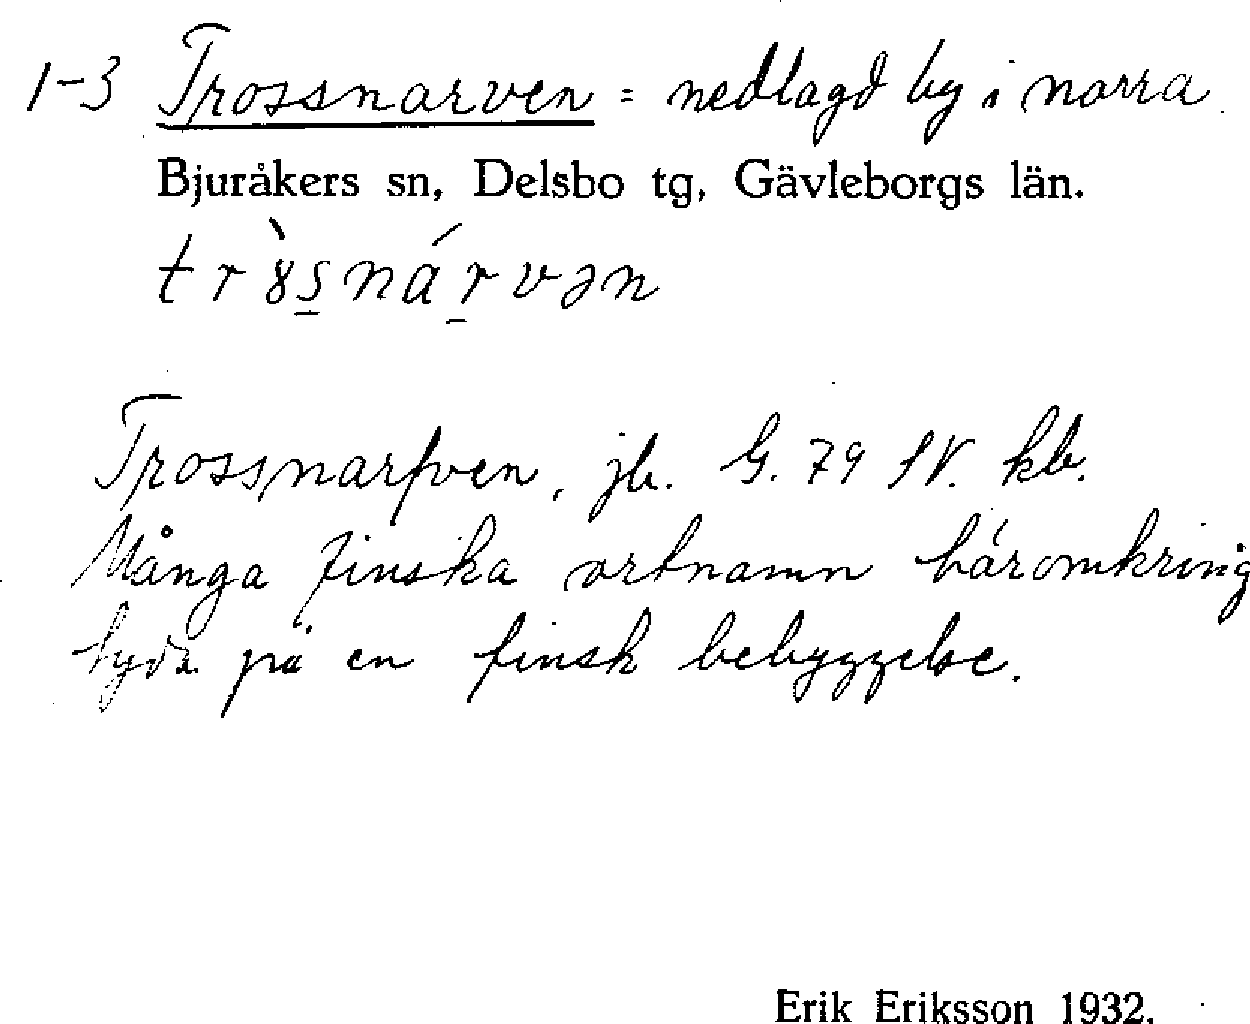 1-3 Trossnarven = nedlagd by i norra
Bjuråkers sn, Delsbo tg, Gävleborgs län.
tr𝑜̀s̠nár̠vən
Trossnarfven, jb. G. 79 kb.
Många finska ortnamn häromkring
tyda på en finsk bebyggelse.
Erik Eriksson 1932.